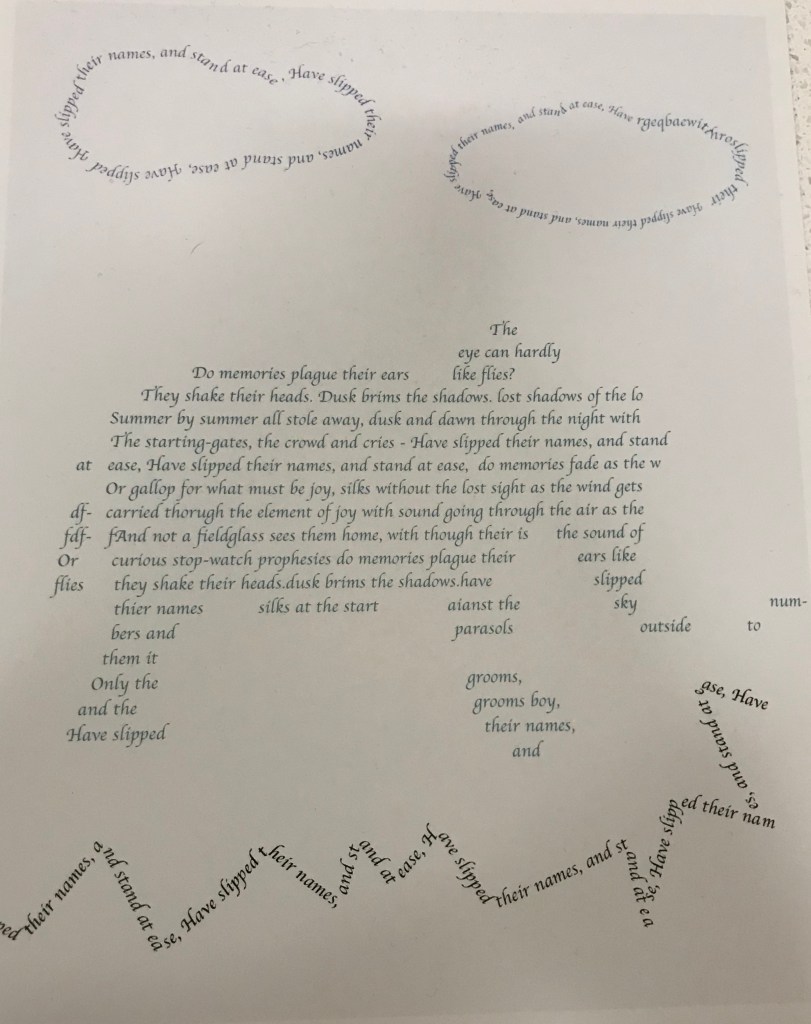 Have slipped their names, and stand at ease , Have slipped their names, and stand at ease, Have slipped
Have slipped their names, and stand at ease, Have rgeqbaewithroslipped their Have slipped their names, and stand at ease,
The
eye can hardly
Do memories plague their ears like flies?
They shake their heads. Dusk brims the shadows. lost shadows of the lo
Summer by summer all stole away, dusk and dawn through the night with
The starting-gates, the crowd and cries - Have slipped their names, and stand
at ease, Have slipped their names, and stand at ease, do memories fade as the w
Or gallop for what must be joy, silks without the lost sight as the wind gets
df- carried thorugh the element of joy with sound going through the air as the
fdf- fAnd not a fieldglass sees them home, with though their is the sound of
Or curious stop-watch prophesies do memories plague their ears like
flies they shake their heads.dusk brims the shadows.have slipped
thier names silks at the start aianst the sky num-
bers and parasols outside to
them it
Only the grooms,
and the grooms boy,
Have slipped their names,
and
ped their names, and stand at ease, Have slipped their names, and stand at ease, Have slipped their names, and stand at ea
se, Have slipped their nam
es, and stand at ease, Have